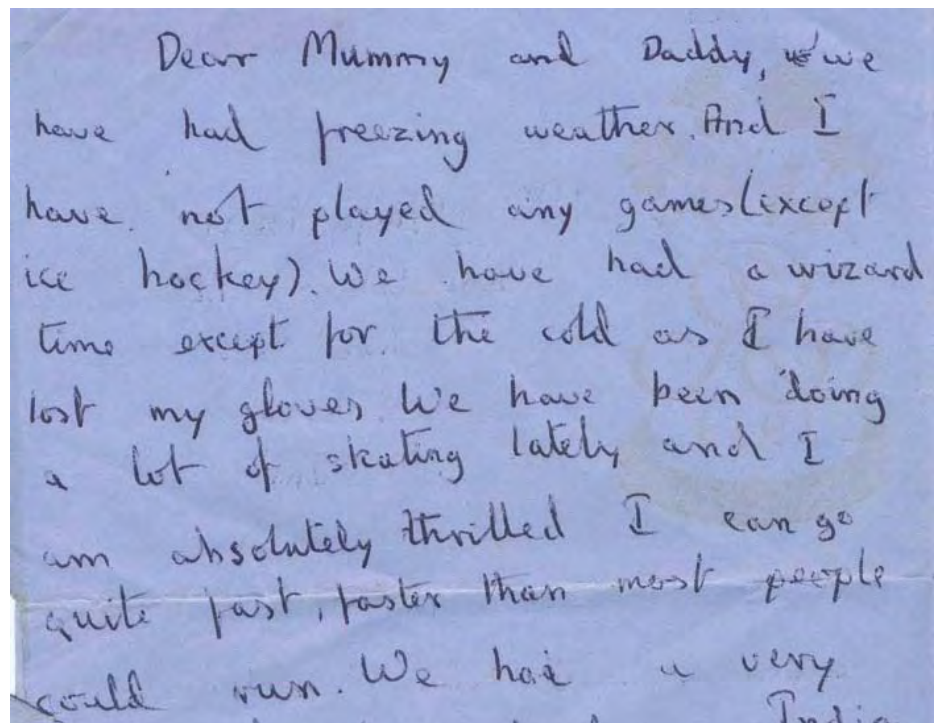 Dear Mummy and Daddy, we
have had freezing weather. And I
have not played any games (except
ice hockey). We have had a wizard
time except for the cold as I have
lost my gloves. We have been doing
a lot of skating lately and I
am absolutely thrilled I can go
quite fast, faster than most people
could run. We had a very
India